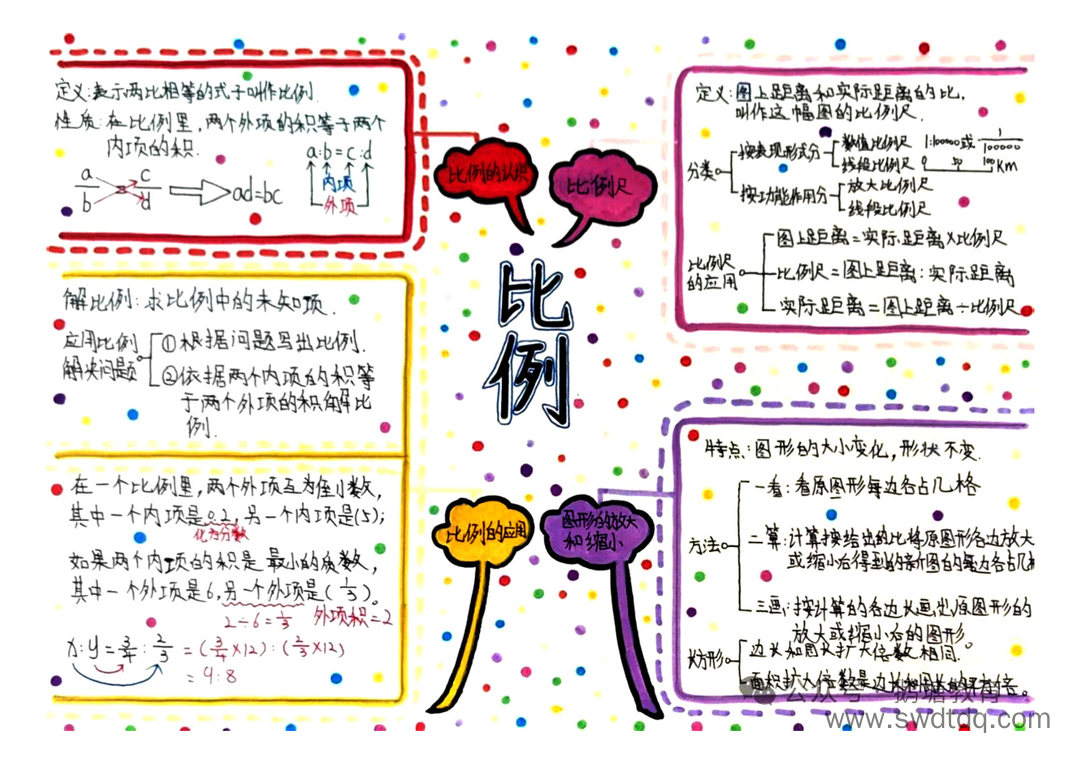 定义:表示两比相等的式子叫作比例.
性质:在比例里,两个外项的积等于两个
内项的积.
a/b c/d ad=bc
a:b=c:d
内项
外项
比例的认识
解比例:求比例中的未知项.
应用比例
解决问题
①根据问题写出比例.
②依据两个内项的积等
于两个外项的积解比
例.
在一个比例里,两个外项互为倒数,
其中一个内项是0.2,另一个内项是(5);
化为分数
如果两个内项的积是最小的质数,
其中一个外项是6,另一个外项是(1/3)。
2÷6=1/3 外项积=2
x:y=3/4:2/3=(3/4×12):(2/3×12)
=9:8
比例的应用
比例
比例尺
定义:图上距离和实际距离的比,
叫作这幅图的比例尺.
分类
按表现形式分
数值比例尺 1:100000或1/100000
线段比例尺 0 50 100Km
按功能作用分
放大比例尺
线段比例尺
比例尺
的应用
图上距离=实际距离×比例尺
比例尺=图上距离:实际距离
实际距离=图上距离÷比例尺
图形的放大
和缩小
特点:图形的大小变化,形状不变.
方法
一看:看原图形每边各占几格
二算:计算按给出的比将原图形各边放大
或缩小后得到的新图的每边各占几
三画:按计算的各边长画出原图形的
放大或缩小后的图形。
长方形
边长和周长扩大倍数相同.
面积扩大倍数是边长
公众号
www.swdtdq.com